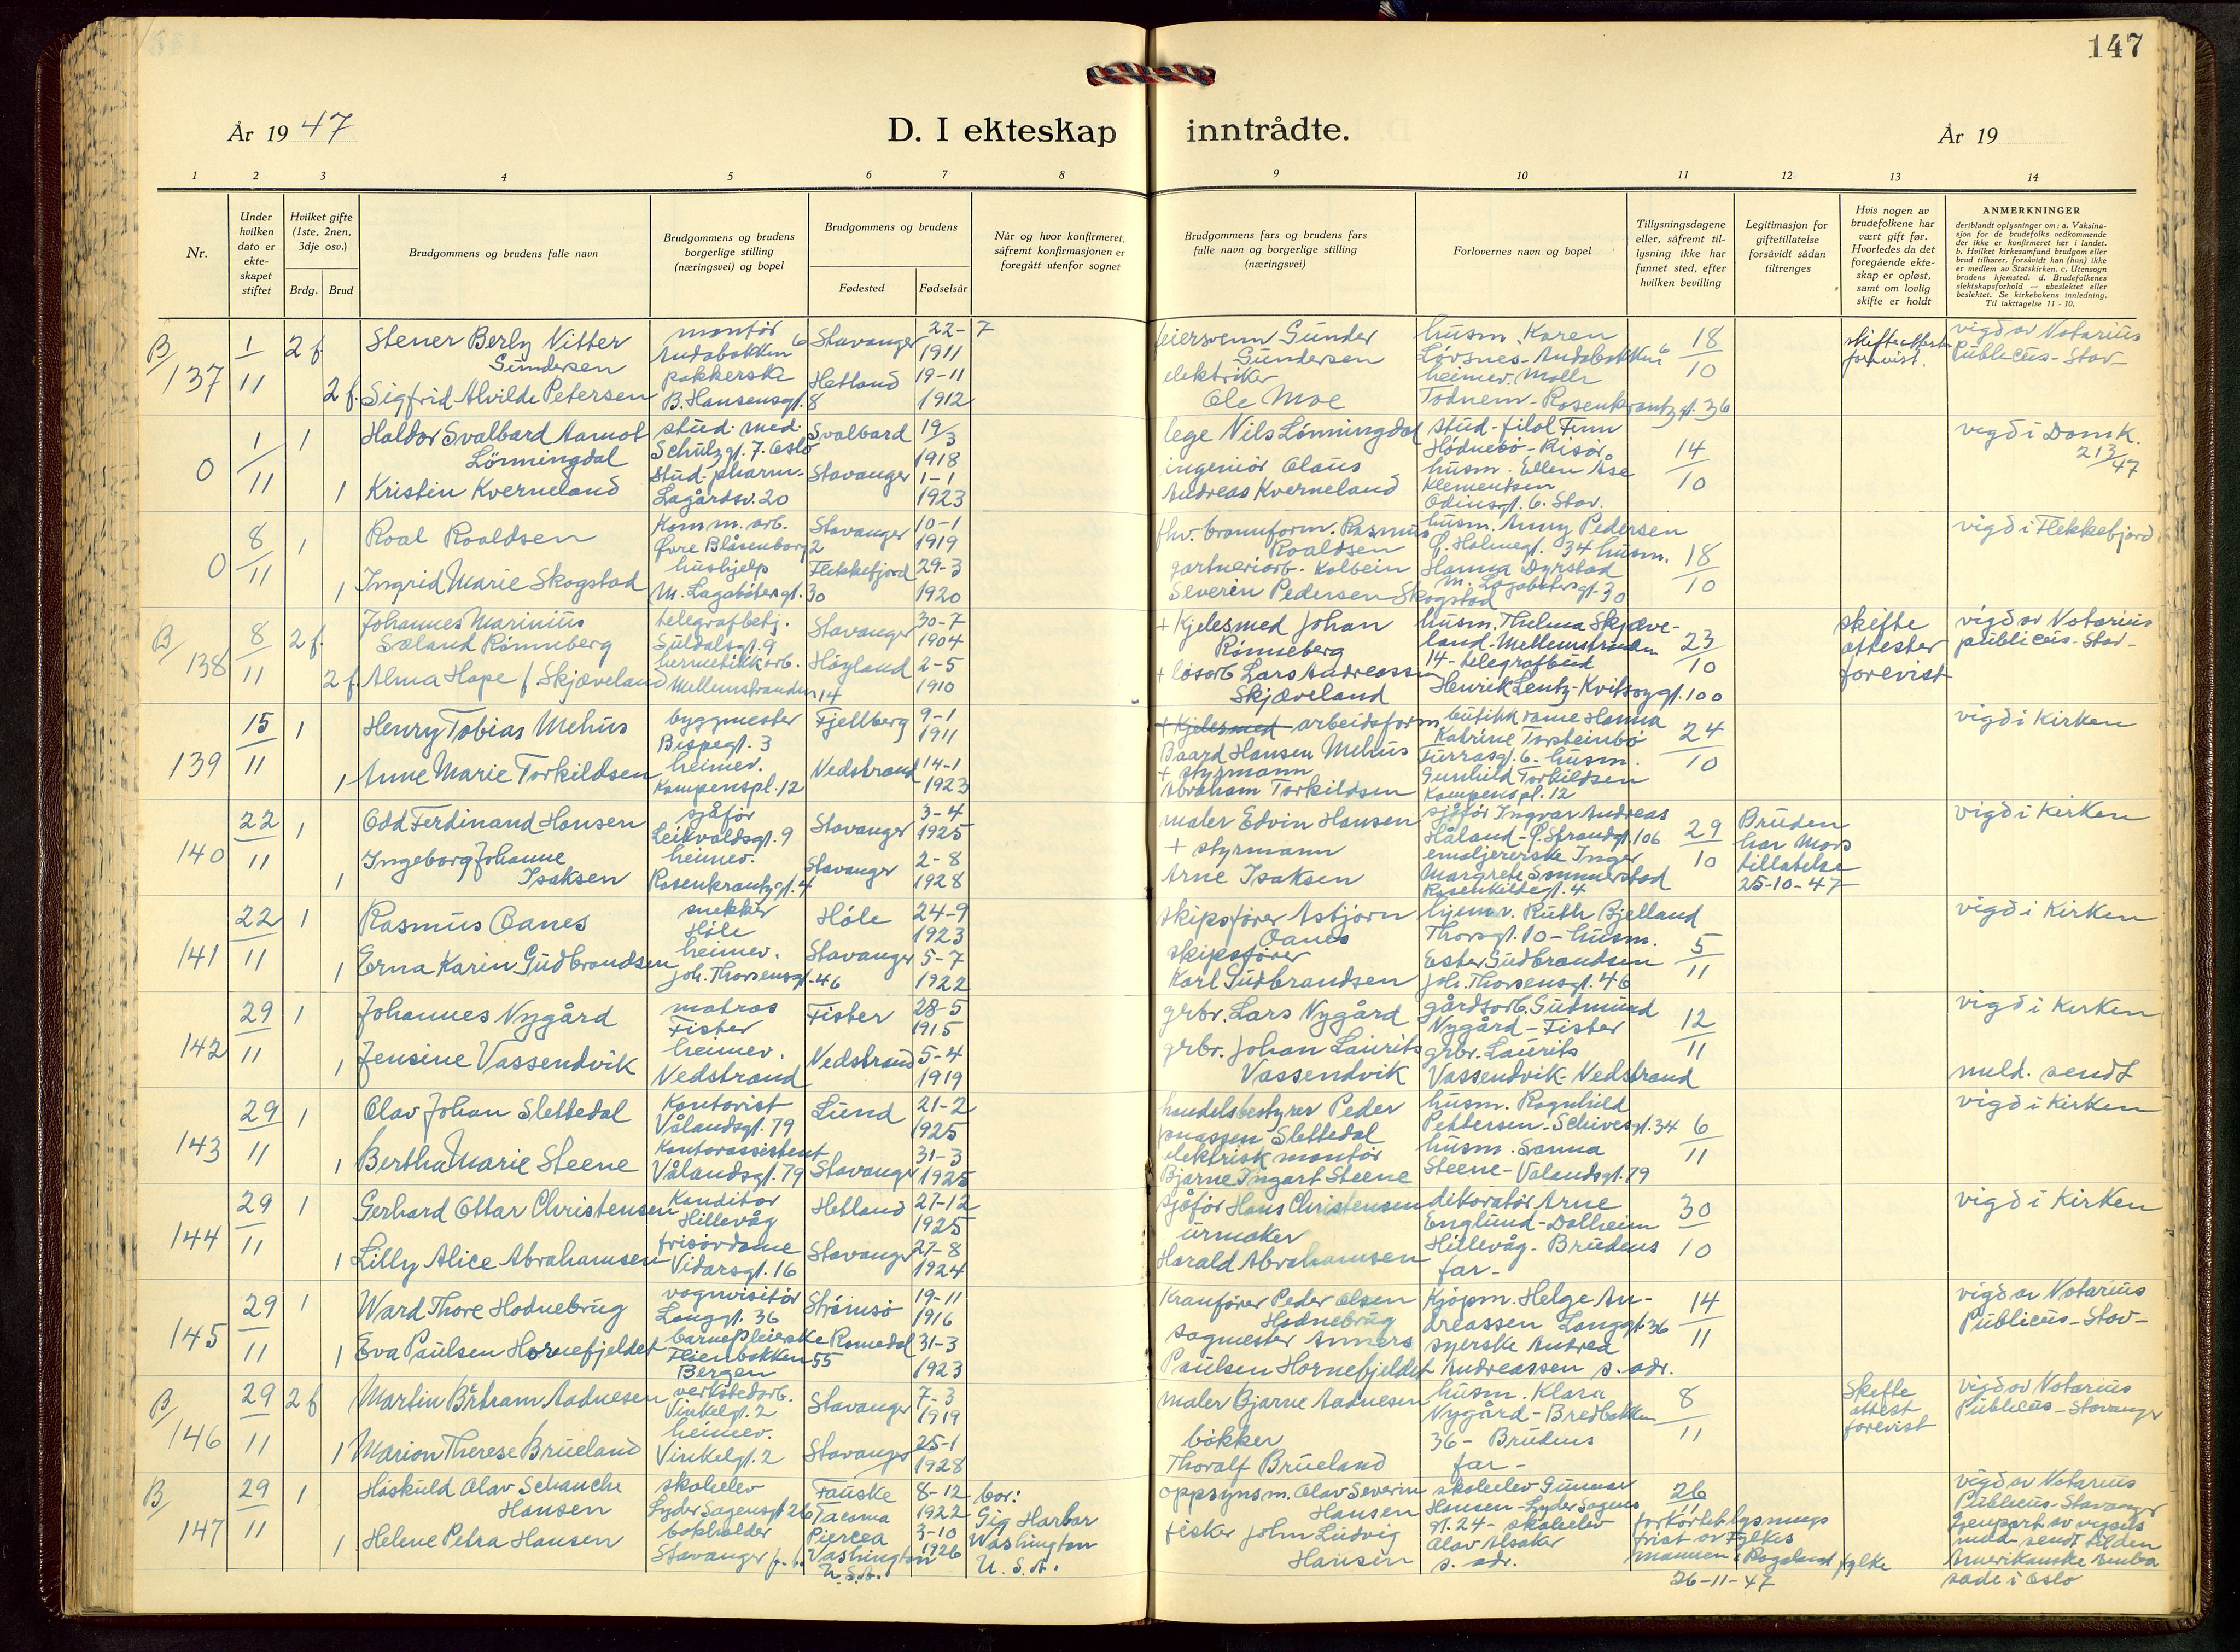 147
År 19 47
D. I ekteskap inntrådte.
År 19
1 2 3 4 5 6 7 8 9 10 11 12 13 14
Nr.
Under hvilken dato er ekte- skapet stiftet
Hvilket gifte (1ste, 2nen, 3dje osv.)
Brdg. Brud
Brudgommens og brudens fulle navn
Brudgommens og brudens borgerlige stilling (næringsvei) og bopel
Brudgommens og brudens
Fødested Fødselsår
Når og hvor konfirmeret, såfremt konfirmasjonen er foregått utenfor sognet
Brudgommens fars og brudens fars fulle navn og borgerlige stilling (næringsvei)
Forlovernes navn og bopel
Tillysningsdagene eller, såfremt til- lysning ikke har funnet sted, efter hvilken bevilling
Legitimasjon for giftetillatelse forsåvidt sådan tiltrenges
Hvis nogen av brudefolkene har vært gift før. Hvorledes da det foregående ekte- skap er opløst, samt om lovlig skifte er holdt
ANMERKNINGER
deriblandt oplysninger om: a. Vaksina- sjon for de brudefolks vedkommende der ikke er konfirmeret her i landet. b. Hvilket kirkesamfund brudgom eller brud tilhører, forsåvidt han (hun) ikke er medlem av Statskirken. c. Utensogn brudens hjemsted. d. Brudefolkenes slektskapsforhold — ubeslektet eller beslektet. Se kirkebokens innledning. Til iakttagelse 11 - 10.
B/ 137 1/11 2 f. Stener Berly Vitter Gundersen montør Andabakken 6 Stavanger 22-7 1911
2 f. Sigfrid Alvilde Petersen pakkerske B. Hansensgt. 8 Hetland 19-11 1912
feiersvenn Gunder Gundersen
elektriker Ole Moe
husm. Karen Løvsnes-Andabakken 6
heimev. Molly Todnem-Rosenkrantzgt. 36
18/10
skifteattest forevist.
vigd av Notarius Publicus-Stav-
0 1/11 1 Haldor Svalbard Aarnot Lönningdal stud. med. Schulzgt. 7. Oslo Svalbard 19/3 1918
1 Kristin Kverneland stud-pharm. Lagårdsv. 20 Stavanger 1-1 1923
lege Nils Lönningdal
ingeniör Olaus Andreas Kverneland
stud-filol Finn Hödnebö-Risör.
husm. Ellen Åse Klementsen Odinsgt. 6. Stav.
14/10
vigd i Domk. 213/47
0 8/11 1 Roal Roaldsen Komm. arb. Øvre Blåsenborg 2 Stavanger 10-1 1919
1 Ingrid Marie Skogstad hushjelp M. Lagabötersgt. 30 Flekkefjord 29-3 1920
fhv. brannform. Rasmus Roaldsen
gartneriarb. Kolbein Severin Pedersen Skogstad
husm. Anny Pedersen Ø. Holmegt. 34
husm. Hanna Dyrstad M. Lagabötersgt. 30
18/10
vigd i Flekkefjord
B/ 138 8/11 2 f. Johannes Marinius Sæland Rønneberg telegrafbetj. Suldalsgt. 9 Stavanger 30-7 1904
2 f. Alma Hope f. Skjæveland hermetikkarb. Mellemstranden 14 Höyland 2-5 1910
+ Kjelesmed Johan Rønneberg
+ løsarb Lars Andreassen Skjæveland
husm. Thelma Skjæve- land-Mellemstranden 14-
telegrafbud Henrik Lentz-Kvitsøygt. 100
23/10
skifte attester forevist
vigd av Notarius publicus-Stav-
139 15/11 1 Henry Tobias Mehus byggmester Bispegt. 3 Fjellberg 9-1 1911
1 Anne Marie Torkildsen heimev. Kampenspl. 12 Nedstrand 14-1 1923
+ Kjelesmed - arbeidsform Baard Hansen Mehus
+ styrmann Abraham Torkildsen
butikkdame Hanna Katrine Torsteinbö Turrasgt. 6-
husm. Gunhild Torkildsen Kampenspl. 12
24/10
vigd i Kirken
140 22/11 1 Odd Ferdinand Hansen sjåför Leikvoldsgt. 9 Stavanger 3-4 1925
1 Ingeborg Johanne Isaksen heimev. Rosenkrantzgt. 4 Stavanger 2-8 1928
maler Edvin Hansen
+ styrmann Arne Isaksen
sjåför Ingvar Andreas Håland-Ø. Strandgt. 106
emaljererske Inger Margrete Sommerstad Rosenkildegt. 4
29/10
Bruden har Mors tillatelse 25-10-47
vigd i Kirken
141 22/11 1 Rasmus Oanes snekker Höle Höle 24-9 1923
1 Erna Karin Gudbrandsen heimev. Joh. Thorsensgt. 46 Stavanger 5-7 1922
skipsförer Asbjörn Oanes
skipsförer Karl Gudbrandsen
hjemv. Ruth Bjelland Thorsgt. 10-
husm. Ester Gudbrandsen Joh. Thorsensgt. 46
5/11
vigd i Kirken
142 29/11 1 Johannes Nygård matros Fister Fister 28-5 1915
1 Jensine Vassendvik heimev. Nedstrand Nedstrand 5-4 1919
grbr. Lars Nygård
grbr. Johan Laurits Vassendvik
gårdsarb. Gudmund Nygård-Fister
grbr. Laurits Vassendvik-Nedstrand
12/11
vigd i Kirken
meld. sendt
143 29/11 1 Olav Johan Slettedal Kontorist Vålandsgt. 79 Lund 21-2 1925
1 Bertha Marie Steene Kontorassistent Vålandsgt. 79 Stavanger 31-3 1925
handelsbestyrer Peder Jonassen Slettedal
elektrisk montör Bjarne Ingart Steene
husm. Ragnhild Pettersen-Schivesgt. 34
husm Sanna Steene-Vålandsgt. 79
6/11
vigd i Kirken
144 29/11 1 Gerhard Ottar Christensen Konditor Hillevåg Hetland 27-12 1925
1 Lilly Alice Abrahamsen frisördame Vidarsgt. 16 Stavanger 27-8 1924
sjåför Hans Christensen
urmaker Harald Abrahamsen
dekoratör Arne Englund-Dalheim Hillevåg-
Brudens far-
30/10
vigd i Kirken
145 29/11 1 Ward Thore Hodnebrug vognvisitör Langgt. 36 Strömsö 19-11 1916
1 Eva Paulsen Hornefjeldet barnepleierske Fløienbakken 55 Bergen Romedal 31-3 1923
Kranförer Peder Olsen Hodnebrug
sagmester Anners Paulsen Hornefjeldet
Kjöpm. Helge An- dreassen Langgt 36
syerske Andrea Andreassen s. adr.
14/11
vigd av Notarius Publicus-Stav-
B/ 146 29/11 2 f Martin Bertram Aadnesen verkstedarb. Vinkelgt. 2 Stavanger 7-3 1919
1 Marion Therese Brueland heimev. Vinkelgt. 2 Stavanger 25-1 1928
maler Bjarne Aadnesen
bökker Thoralf Brueland
husm. Klara Nygård-Bredbakken 36-
Brudens far-
8/11
Skifte attest forevist
vigd av Notarius Publicus-Stavanger
B/ 147 29/11 1 Höskuld Olav Schanche Hansen skoleelev Lyder Sagensgt 26 Fauske 8-12 1922
1 Helene Petra Hansen bokholder Stavanger Tacoma Piercea Vashington U.S.A. 3-10 1926
bor: Gig Harbor Washington U.S.A.
oppsynsm. Olav Severin Hansen
fisker John Ludvig Hansen
skoleelev Gunnar Hansen-Lyder Sagens gt. 24-
skoleelev Olav Alsaker s. adr.
26/11
forkortet lysnings frist av Fylkes mannen i Rogaland fylke 26-11-47
vigd av Notarius Publicus-Stavanger
Gjenpart av vigsels meld. sendt til den Amerikanske Amba sade i Oslo